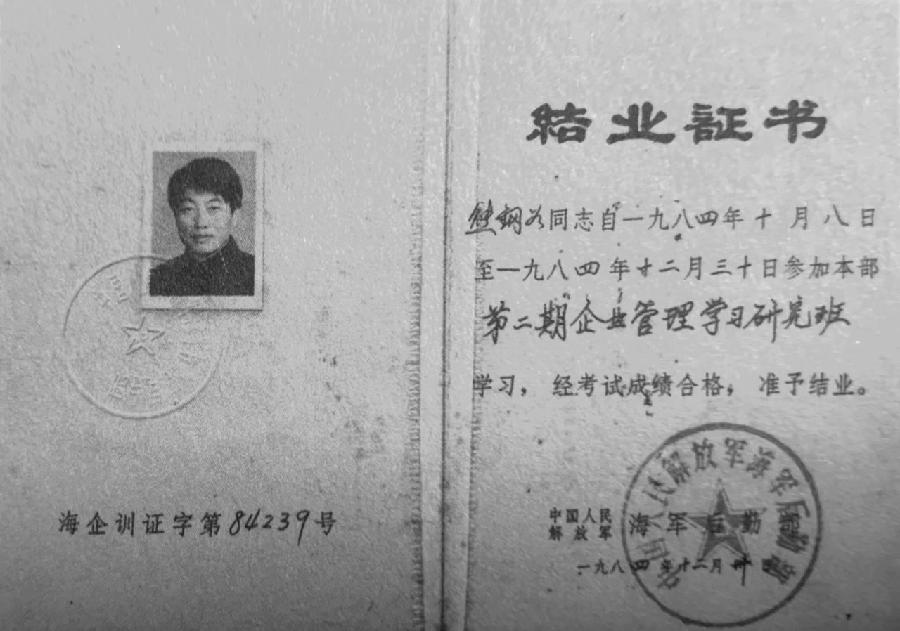 海企训证字第84239号
结业证书
同志自一九八四年十月八日
至一九八四年十二月三十日参加本部
第二期企业管理学习研究班
学习，经考试成绩合格，准予结业。
中国人民解放军海军后勤部
中国人民
解放军
海军后勤
一九八四年十二月卅